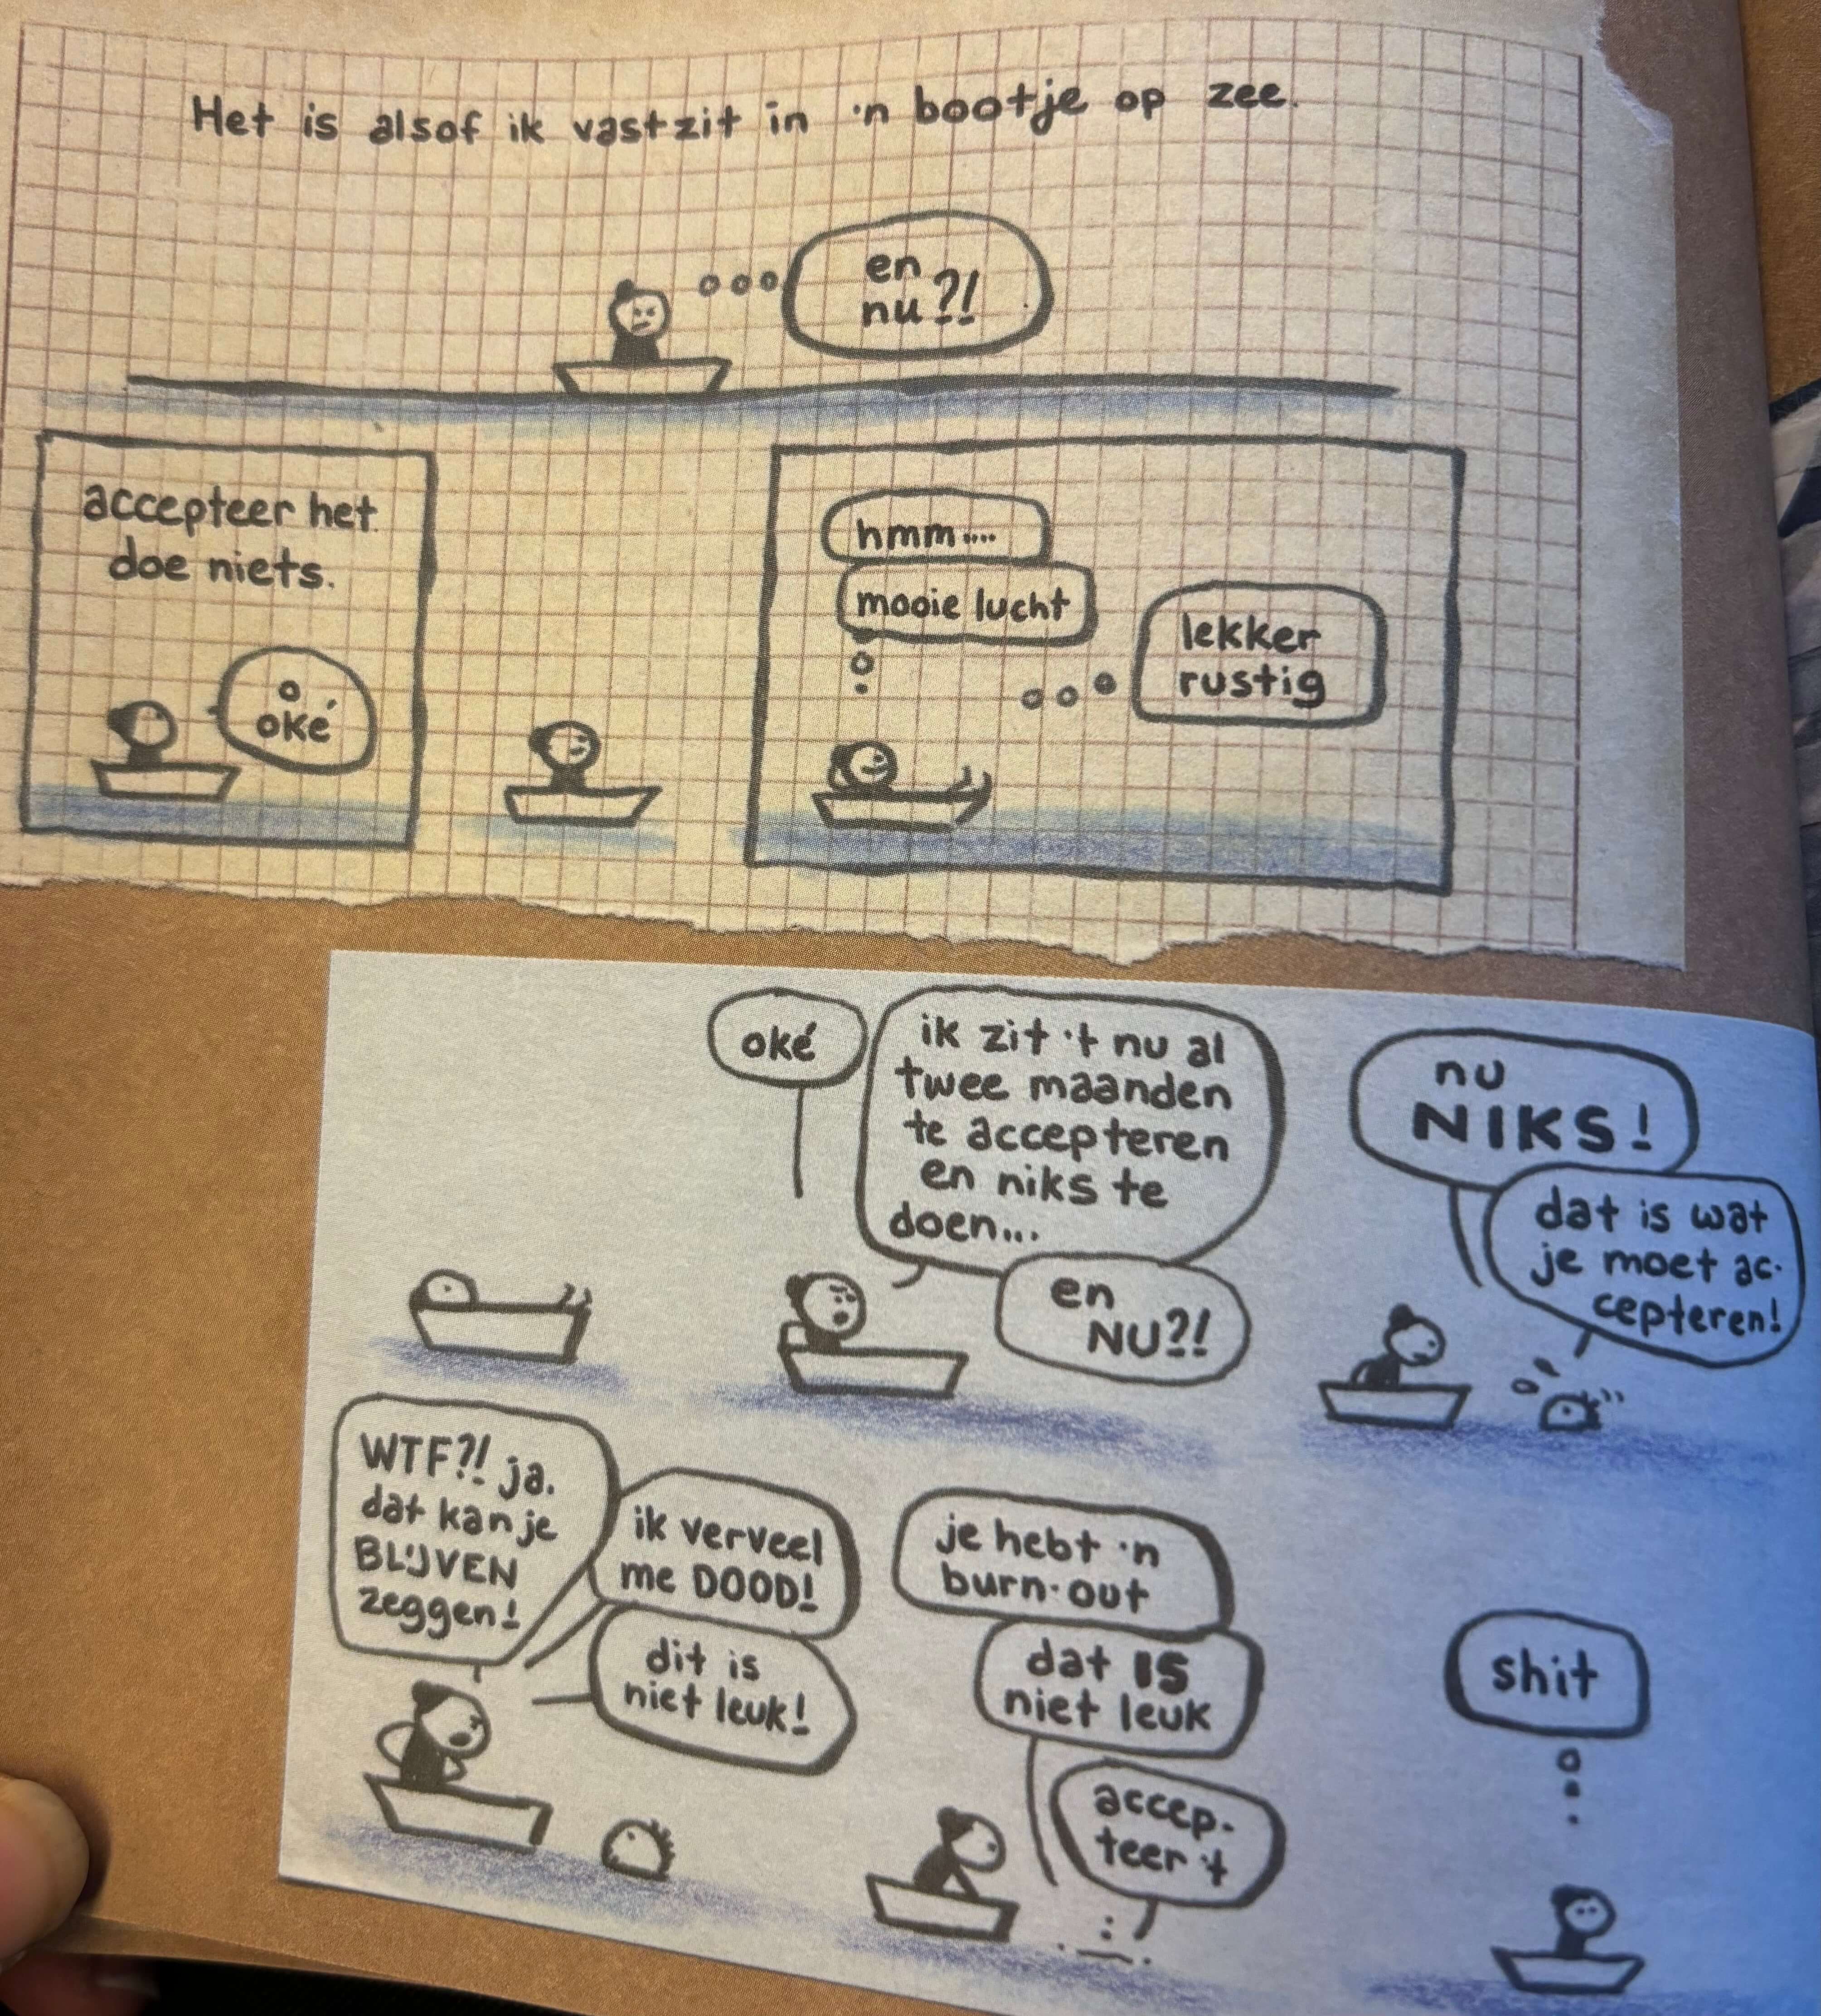 Het is alsof ik vastzit in 'n bootje op zee.
en
nu?!
accepteer het.
doe niets.
o
oké
hmm....
mooie lucht
lekker
rustig
oké
ik zit 't nu al
twee maanden
te accepteren
en niks te
doen...
en
NU?!
nu
NIKS!
dat is wat
je moet ac-
cepteren!
WTF?! ja.
dat kan je
BLIJVEN
zeggen!
ik verveel
me DOOD!
dit is
niet leuk!
je hebt 'n
burn-out
dat IS
niet leuk
accep-
teer 't
shit